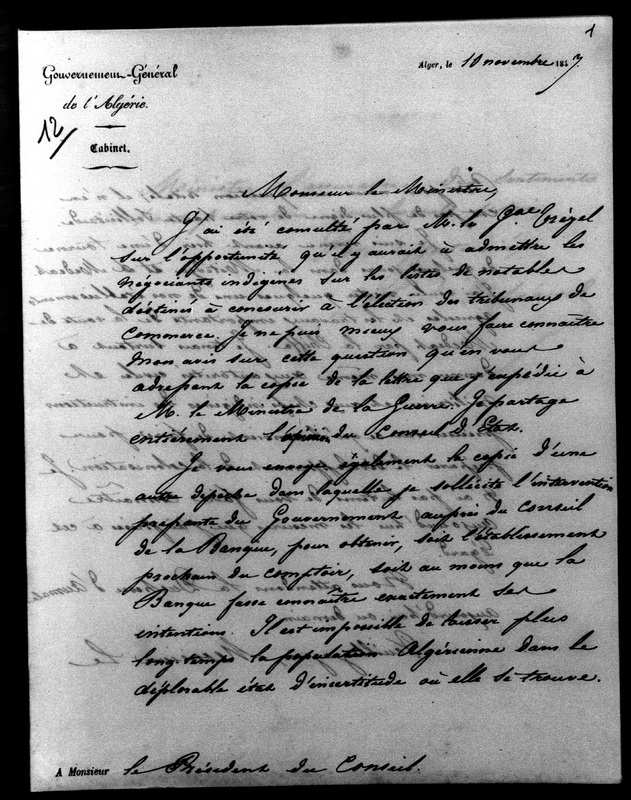 1
Gouvernement-Général
de l'Algérie.
12/
Cabinet.
Alger, le 10 novembre 1847
Monsieur le Ministre,
J'ai été consulté par M. le Gal Trézel
sur l'opportunité qu'il y aurait à admettre les
négociants indigènes sur les listes de notables
destinés à concourir à l'élection des tribunaux de
Commerce. Je ne puis mieux vous faire connaître
mon avis sur cette question qu'en vous
adressant la copie de la lettre que j'expédie à
M. le Ministre de la Guerre. Je partage
entièrement l'opinion du Conseil d'Etat.
Je vous envoye également la copie d'une
autre dépêche dans laquelle je sollicite l'intervention
pressante du Gouvernement auprès du Conseil
de la Banque, pour obtenir, soit l'établissement
prochain du comptoir, soit au moins que la
Banque fasse connaître exactement ses
intentions. Il est impossible de laisser plus
long-temps la population Algérienne dans le
déplorable état d'incertitude où elle se trouve.
A Monsieur le Président du Conseil.